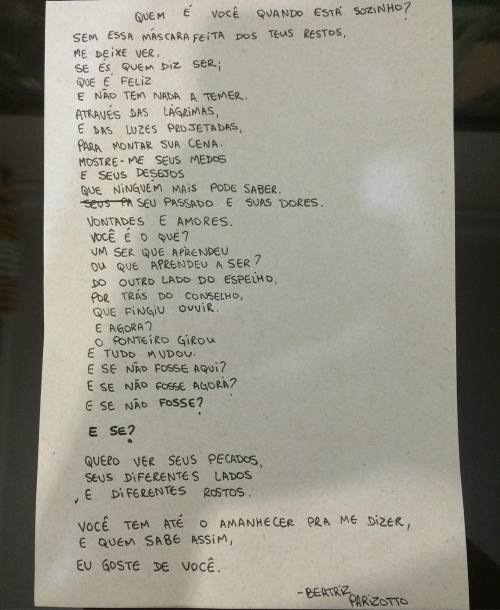 QUEM É VOCÊ QUANDO ESTÁ SOZINHO?
SEM ESSA MÁSCARA FEITA DOS TEUS RESTOS,
ME DEIXE VER.
SE ÉS QUEM DIZ SER;
QUE É FELIZ
E NÃO TEM NADA A TEMER.
ATRAVÉS DAS LÁGRIMAS,
E DAS LUZES PROJETADAS,
PARA MONTAR SUA CENA.
MOSTRE-ME SEUS MEDOS
E SEUS DESEJOS
QUE NINGUÉM MAIS PODE SABER.
SEUS PA SEU PASSADO E SUAS DORES.
VONTADES E AMORES.
VOCÊ É O QUE?
UM SER QUE APRENDEU
OU QUE APRENDEU A SER?
DO OUTRO LADO DO ESPELHO,
POR TRÁS DO CONSELHO,
QUE FINGIU OUVIR.
E AGORA?
O PONTEIRO GIROU
E TUDO MUDOU.
E SE NÃO FOSSE AQUI?
E SE NÃO FOSSE AGORA?
E SE NÃO FOSSE?
E SE?
QUERO VER SEUS PECADOS,
SEUS DIFERENTES LADOS
E DIFERENTES ROSTOS.
VOCÊ TEM ATÉ O AMANHECER PRA ME DIZER,
E QUEM SABE ASSIM,
EU GOSTE DE VOCÊ.
-BEATRIZ
PARIZOTTO